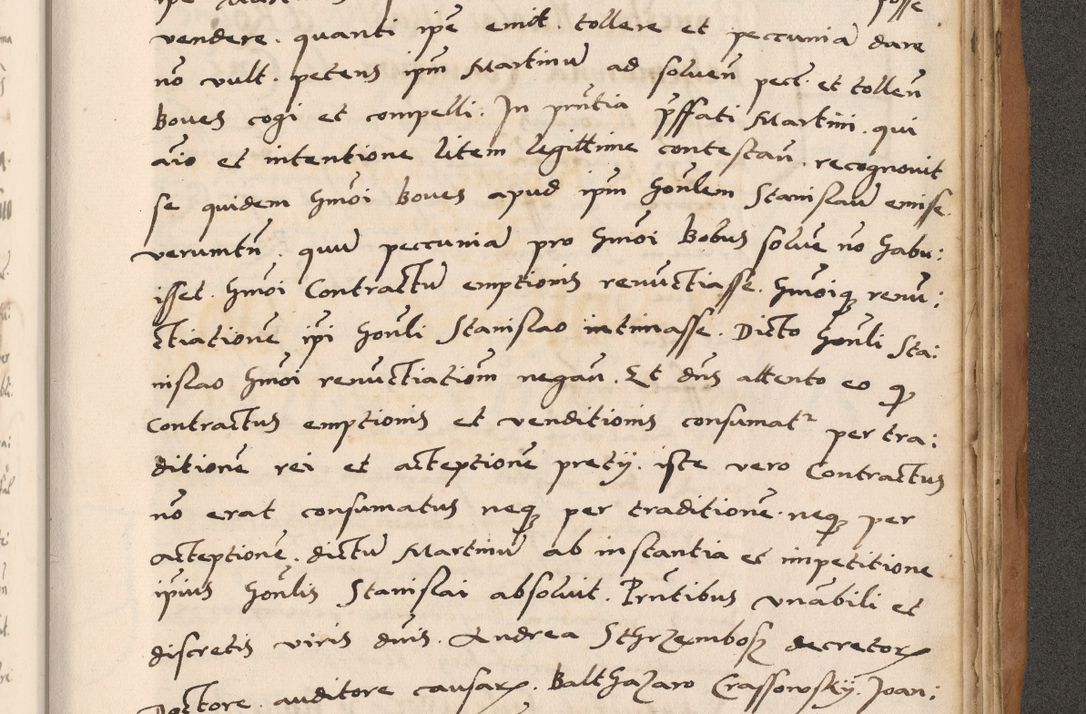 posse
vendere. quanti ipē emit. tollere et peccuniā dare
nō vult. petens ipm Martinū ad solven̄ pect. et tollen̄
Boves cogi et compelli. In pn̄tia p̄ffati Martini. qui
aīo et intentione litem legittime contestan̄. recognovit
se quidem hm̄oi Boves apud ipm hon̄lem Stanislaū emisse.
verumtn̄. quū peccuniā pro hm̄oi Bobus solvē nō habu:
isset. hm̄oi Contractū emptionis renūctiasse. hm̄oiq renū:
ctiationē ipī hon̄li Stanislao intimasse. Dicto hon̄li Sta:
nislao hm̄oi renūctiationi negan̄. Et dn̄s attento eo q
Contractus emptionis et venditionis consumatr per tra:
ditionē rei et acceptionē pretij. iste vero Contractus
nō erat consumatus neq per traditionē. neq per
acceptionē. dictū Martinū ab instantia et impetitione
ipius hon̄lis Stanislai absolvit. Pn̄tibus vn̄abili et
discretis viris dn̄is. Andrea Sthrzembosz decretor
Doctore. auditore causar. Balthazaro Crassowsky. Joan: